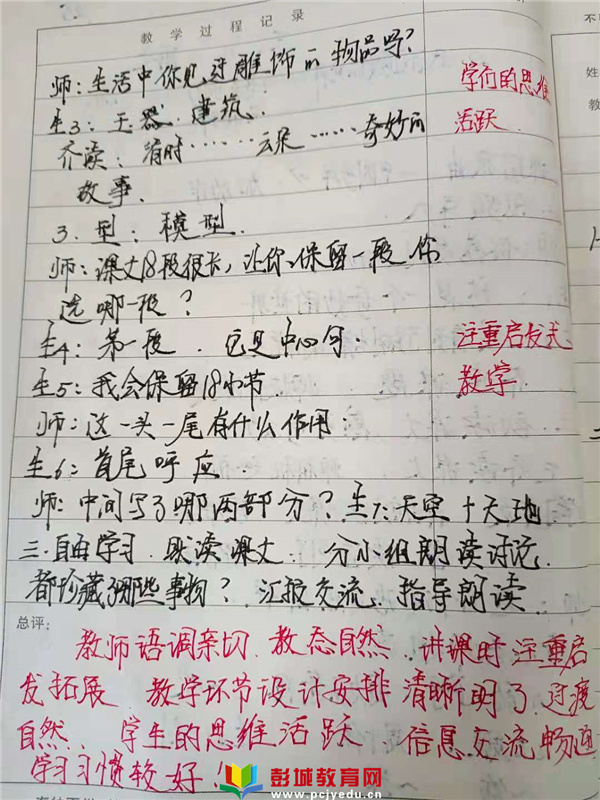 教学过程记录
师：生活中你见过雕饰的物品吗？
学们的思维
生3：玉器、建筑.
活跃.
齐读：有时……云朵……奇妙的
故事.
3.型：模型.
师：课文18段很长，让你保留一段你
选哪一段？
生4：第一段.它是中心句.
注重启发式
生5：我会保留18小节.
教学.
师：这一头一尾有什么作用：
生6：首尾呼应.
师：中间写了哪两部分？生7：天空+大地
三.自由学习.默读课文：分小组朗读讨论.
都珍藏了哪些事物？汇报交流.指导朗读.
总评：
教师语调亲切.教态自然.讲课时注重启
发拓展.教学环节设计安排清晰明了.过渡
自然.学生的思维活跃.信息交流畅通
学习习惯较好！
彭城教育网
www.pcjyedu.cn
姓
教